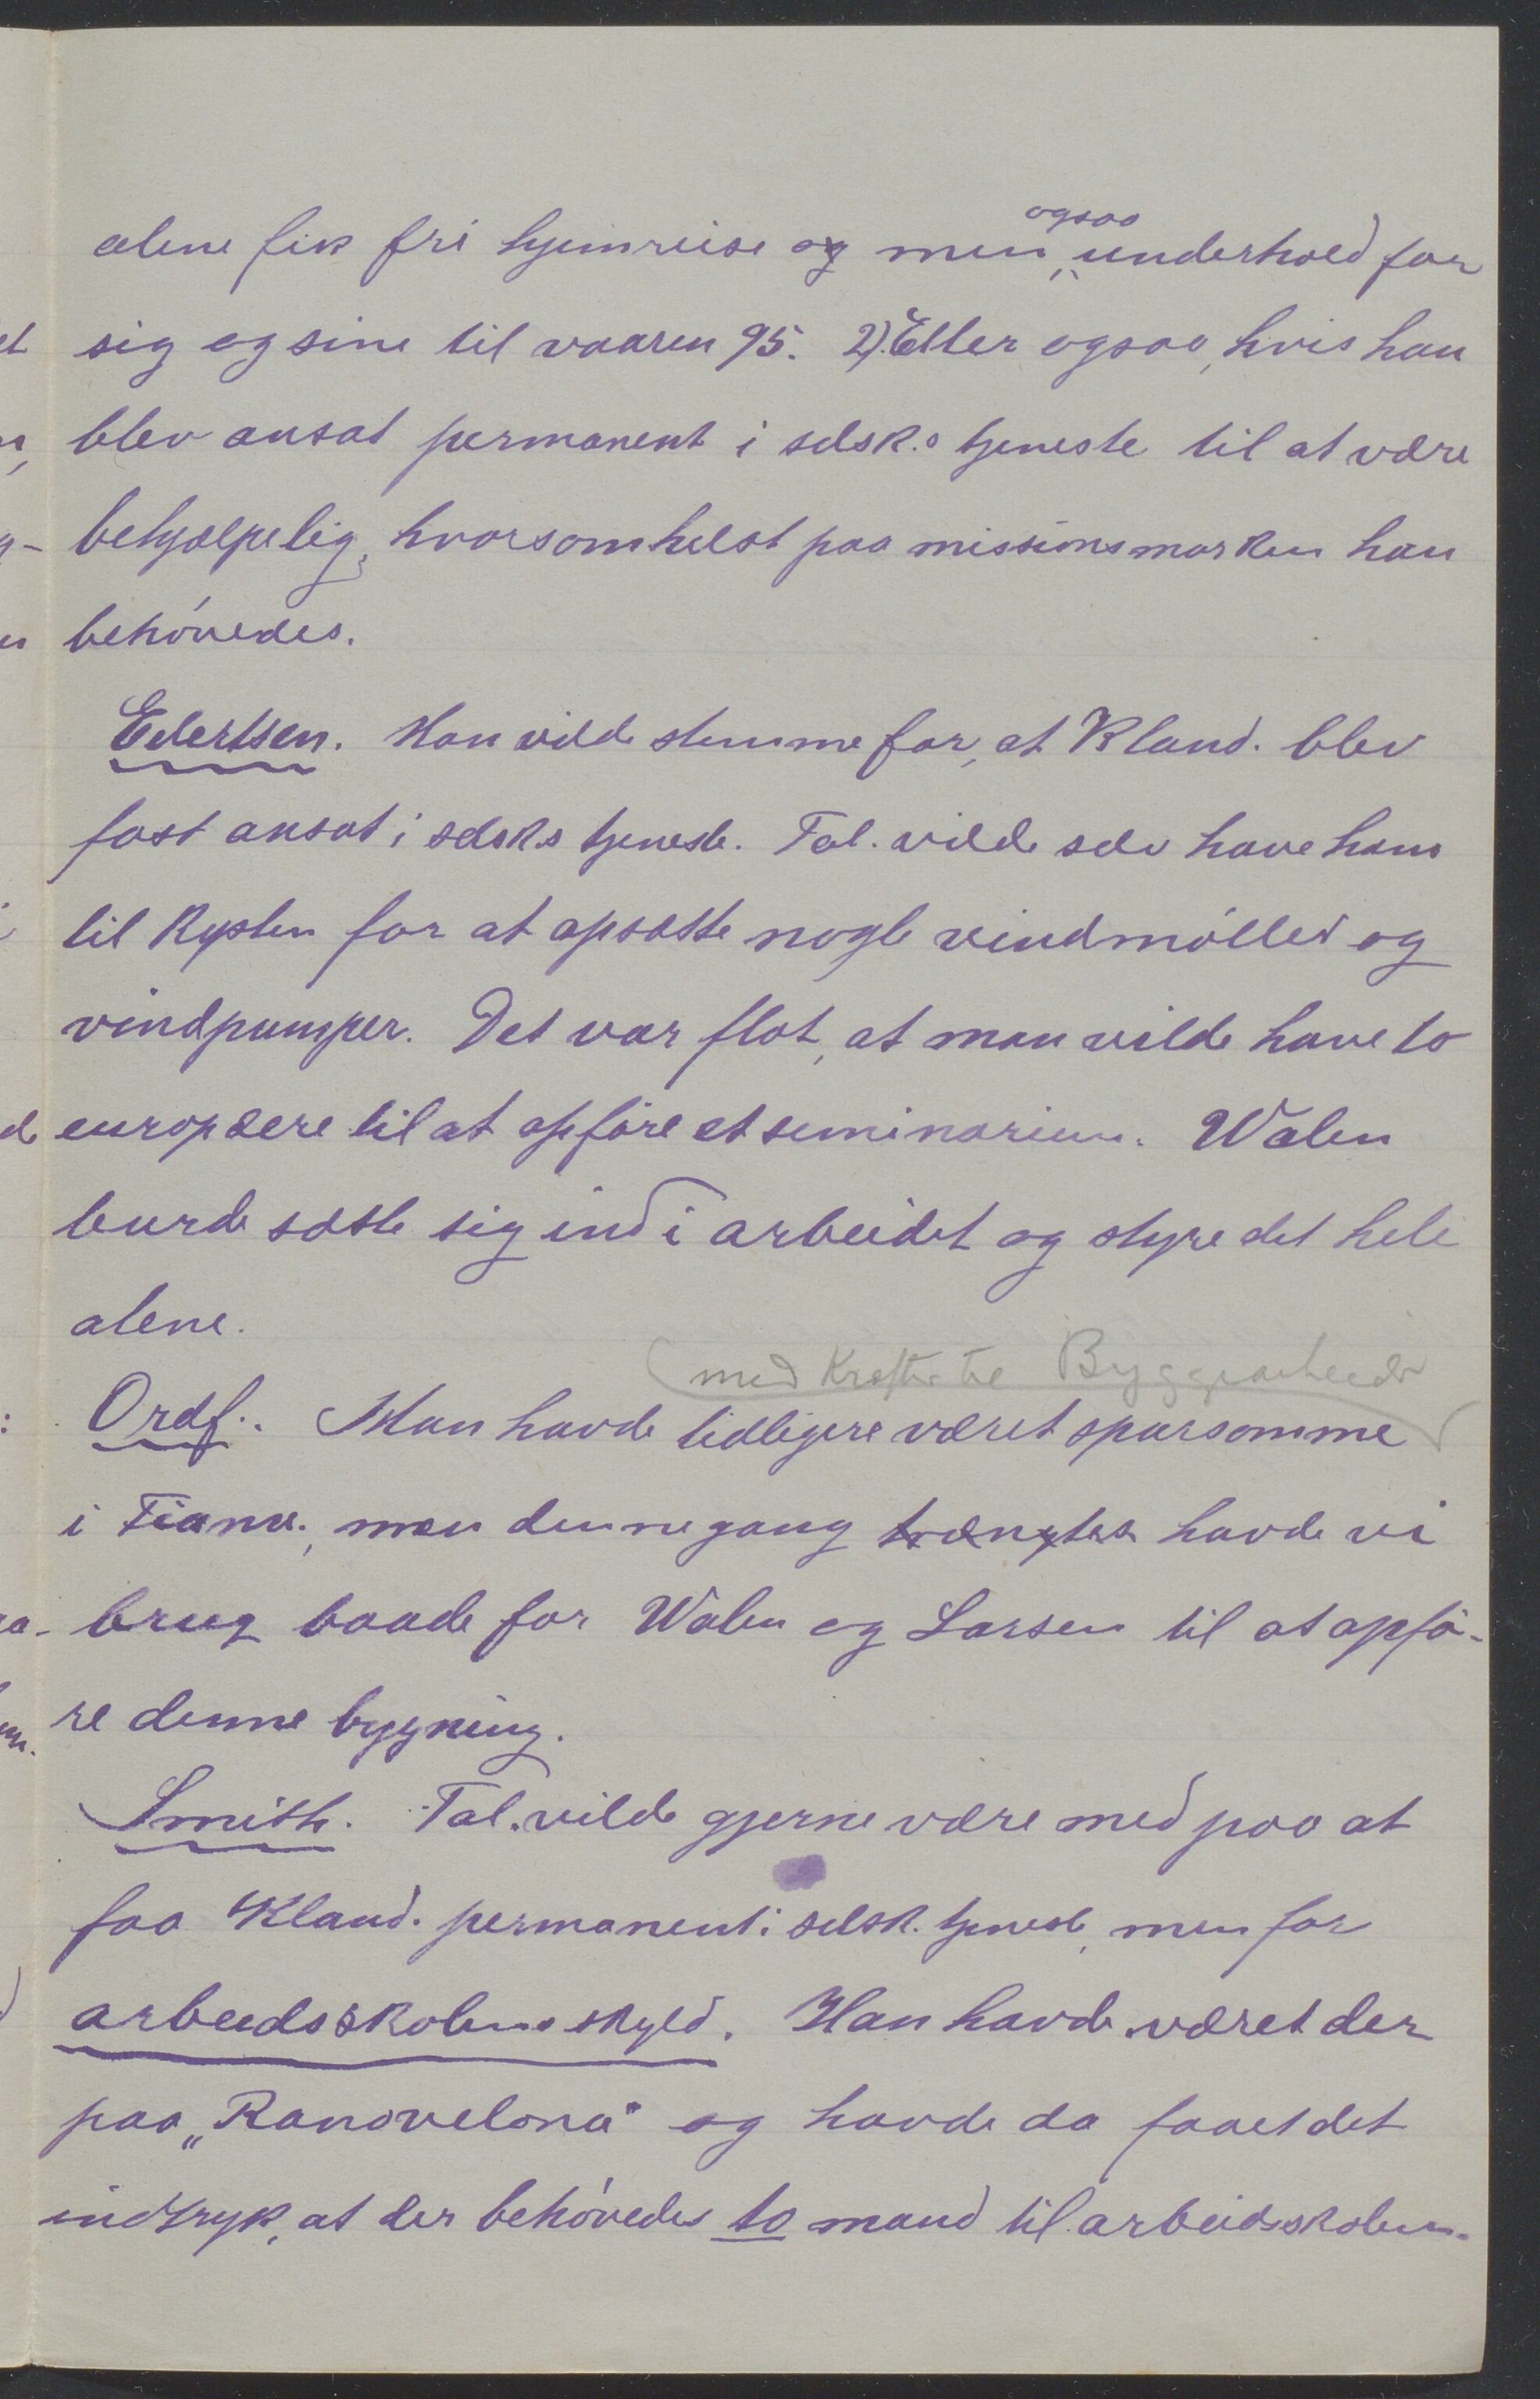 alene fik fri hjemreise og men også underhold for
sig og sine til vaaren 95. 2). Eller ogsaa, hvis han
blev ansat permanent i selsk.s tjeneste til at være
behjælpelig, hvorsomhelst paa missionsmarken han
behövedes.
Evertsen. Han vilde stemme for, at Kland. blev
fast ansat i selsk.s tjeneste. Tal. vilde selv have ham
til kysten for at opsætte nogle vindmöller og
vindpumper. Det var flot, at man vilde have to
europæere til at opföre et seminarium. Walen
burde sætte sig ind i arbeidet og styre det hele
alene.
(med Krefter til Byggearbeider
Ordf.. Man havde tidligere været sparsomme
i Fianar., men denne gang trængtes havde vi
brug baade for Walen og Larsen til at opfö-
re denne bygning.
Smith. Tal. vilde gjerne være med paa at
faa Kland. permanent i selsk. tjeneste, men for
arbeidsskolens skyld. Han havde været der
paa „Ranovelona" og havde da faaet det
indtryk, at der behövedes to mand til arbeidsskolen.